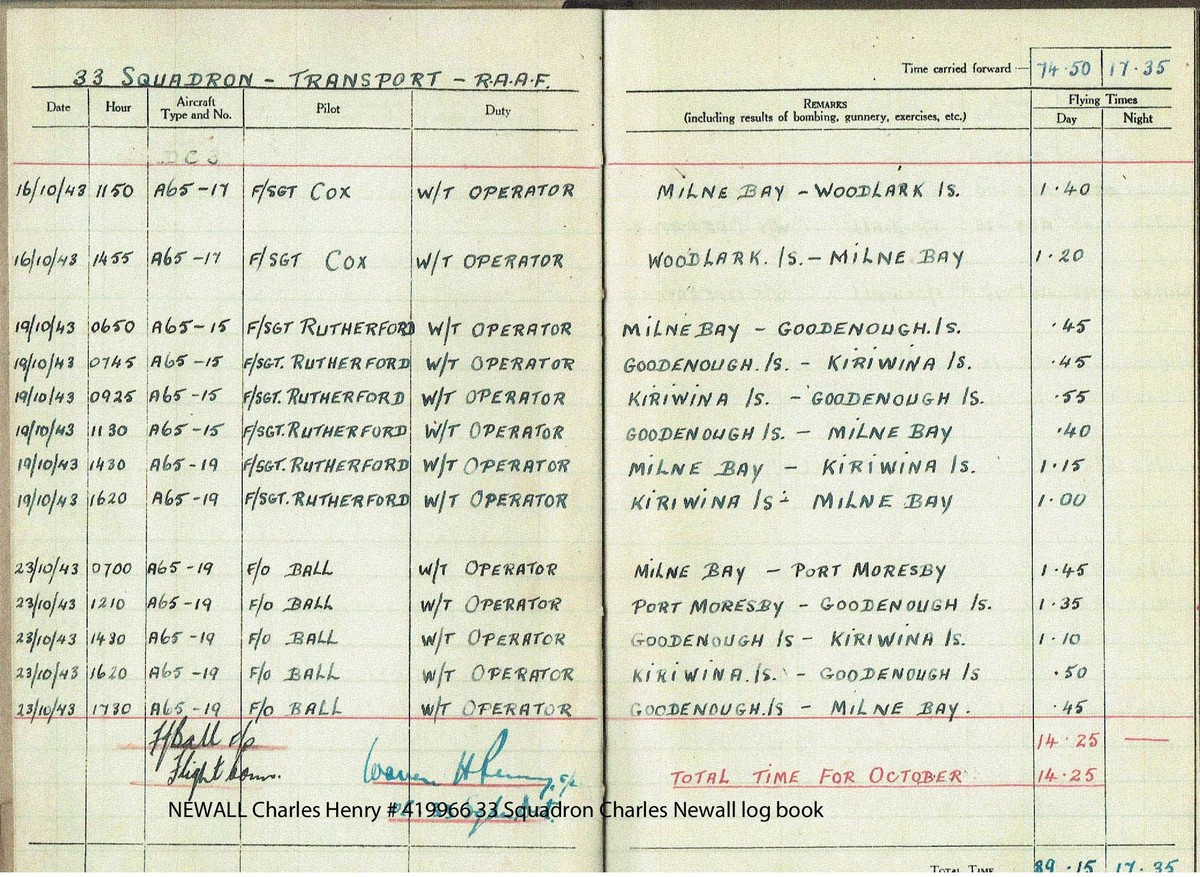 33 SQUADRON - TRANSPORT - R.A.A.F.
Time carried forward — 74·50 17·35
Date Hour Aircraft Type and No. Pilot Duty REMARKS (including results of bombing, gunnery, exercises, etc.) Flying Times Day Night
DC3
16/10/43 1150 A65-17 F/SGT COX W/T OPERATOR MILNE BAY - WOODLARK IS. 1·40
16/10/43 1455 A65-17 F/SGT COX W/T OPERATOR WOODLARK. IS. - MILNE BAY 1·20
19/10/43 0650 A65-15 F/SGT RUTHERFORD W/T OPERATOR MILNE BAY - GOODENOUGH.IS. ·45
19/10/43 0745 A65-15 F/SGT. RUTHERFORD W/T OPERATOR GOODENOUGH.IS. - KIRIWINA IS. ·45
19/10/43 0925 A65-15 F/SGT. RUTHERFORD W/T OPERATOR KIRIWINA IS. - GOODENOUGH IS. ·55
19/10/43 1130 A65-15 F/SGT. RUTHERFORD W/T OPERATOR GOODENOUGH IS. - MILNE BAY ·40
19/10/43 1430 A65-19 F/SGT. RUTHERFORD W/T OPERATOR MILNE BAY - KIRIWINA IS. 1·15
19/10/43 1620 A65-19 F/SGT. RUTHERFORD W/T OPERATOR KIRIWINA IS - MILNE BAY 1·00
23/10/43 0700 A65-19 F/O BALL W/T OPERATOR MILNE BAY - PORT MORESBY 1·45
23/10/43 1210 A65-19 F/O BALL W/T OPERATOR PORT MORESBY - GOODENOUGH IS. 1·35
23/10/43 1430 A65-19 F/O BALL W/T OPERATOR GOODENOUGH IS - KIRIWINA IS. 1·10
23/10/43 1620 A65-19 F/O BALL W/T OPERATOR KIRIWINA.IS. - GOODENOUGH IS ·50
23/10/43 1730 A65-19 F/O BALL W/T OPERATOR GOODENOUGH.IS - MILNE BAY. ·45
Ball 14·25 —
Flight TOTAL TIME FOR OCTOBER 14·25
NEWALL Charles Henry # 419966 33 Squadron Charles Newall log book
TOTAL TIME 89·15 17·35